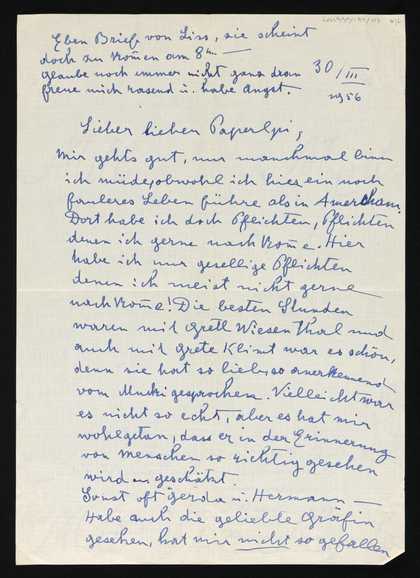 Eben Brief von Liss, sie scheint
doch zu kom̄en am 8ten —
glaube noch immer nicht ganz dran
freue mich rasend u. habe Angst.
30/III
1956
Lieber lieber Paperlgi,
Mir gehts gut, nur manchmal bin
ich müde, obwohl ich hier ein noch
fauleres Leben führe als in Amersham.
Dort habe ich doch Pflichten, Pflichten
denen ich gerne nachkom̄e. Hier
habe ich nur gesellige Pflichten
denen ich meist nicht gerne
nachkom̄e! Die besten Stunden
waren mit Gretl Wiesenthal und
auch mit Grete Klimt war es schön,
denn sie hat so lieb, so anerkennend
vom Mucki gesprochen. Vielleicht war
es nicht so echt, aber es hat mir
wohlgetan, dass er in der Erinnerung
von Menschen so richtig gesehen
wird u geschätzt.
Sonst oft Gerda u. Hermann —
Habe auch die geliebte Gräfin
gesehen, hat mir nicht so gefallen